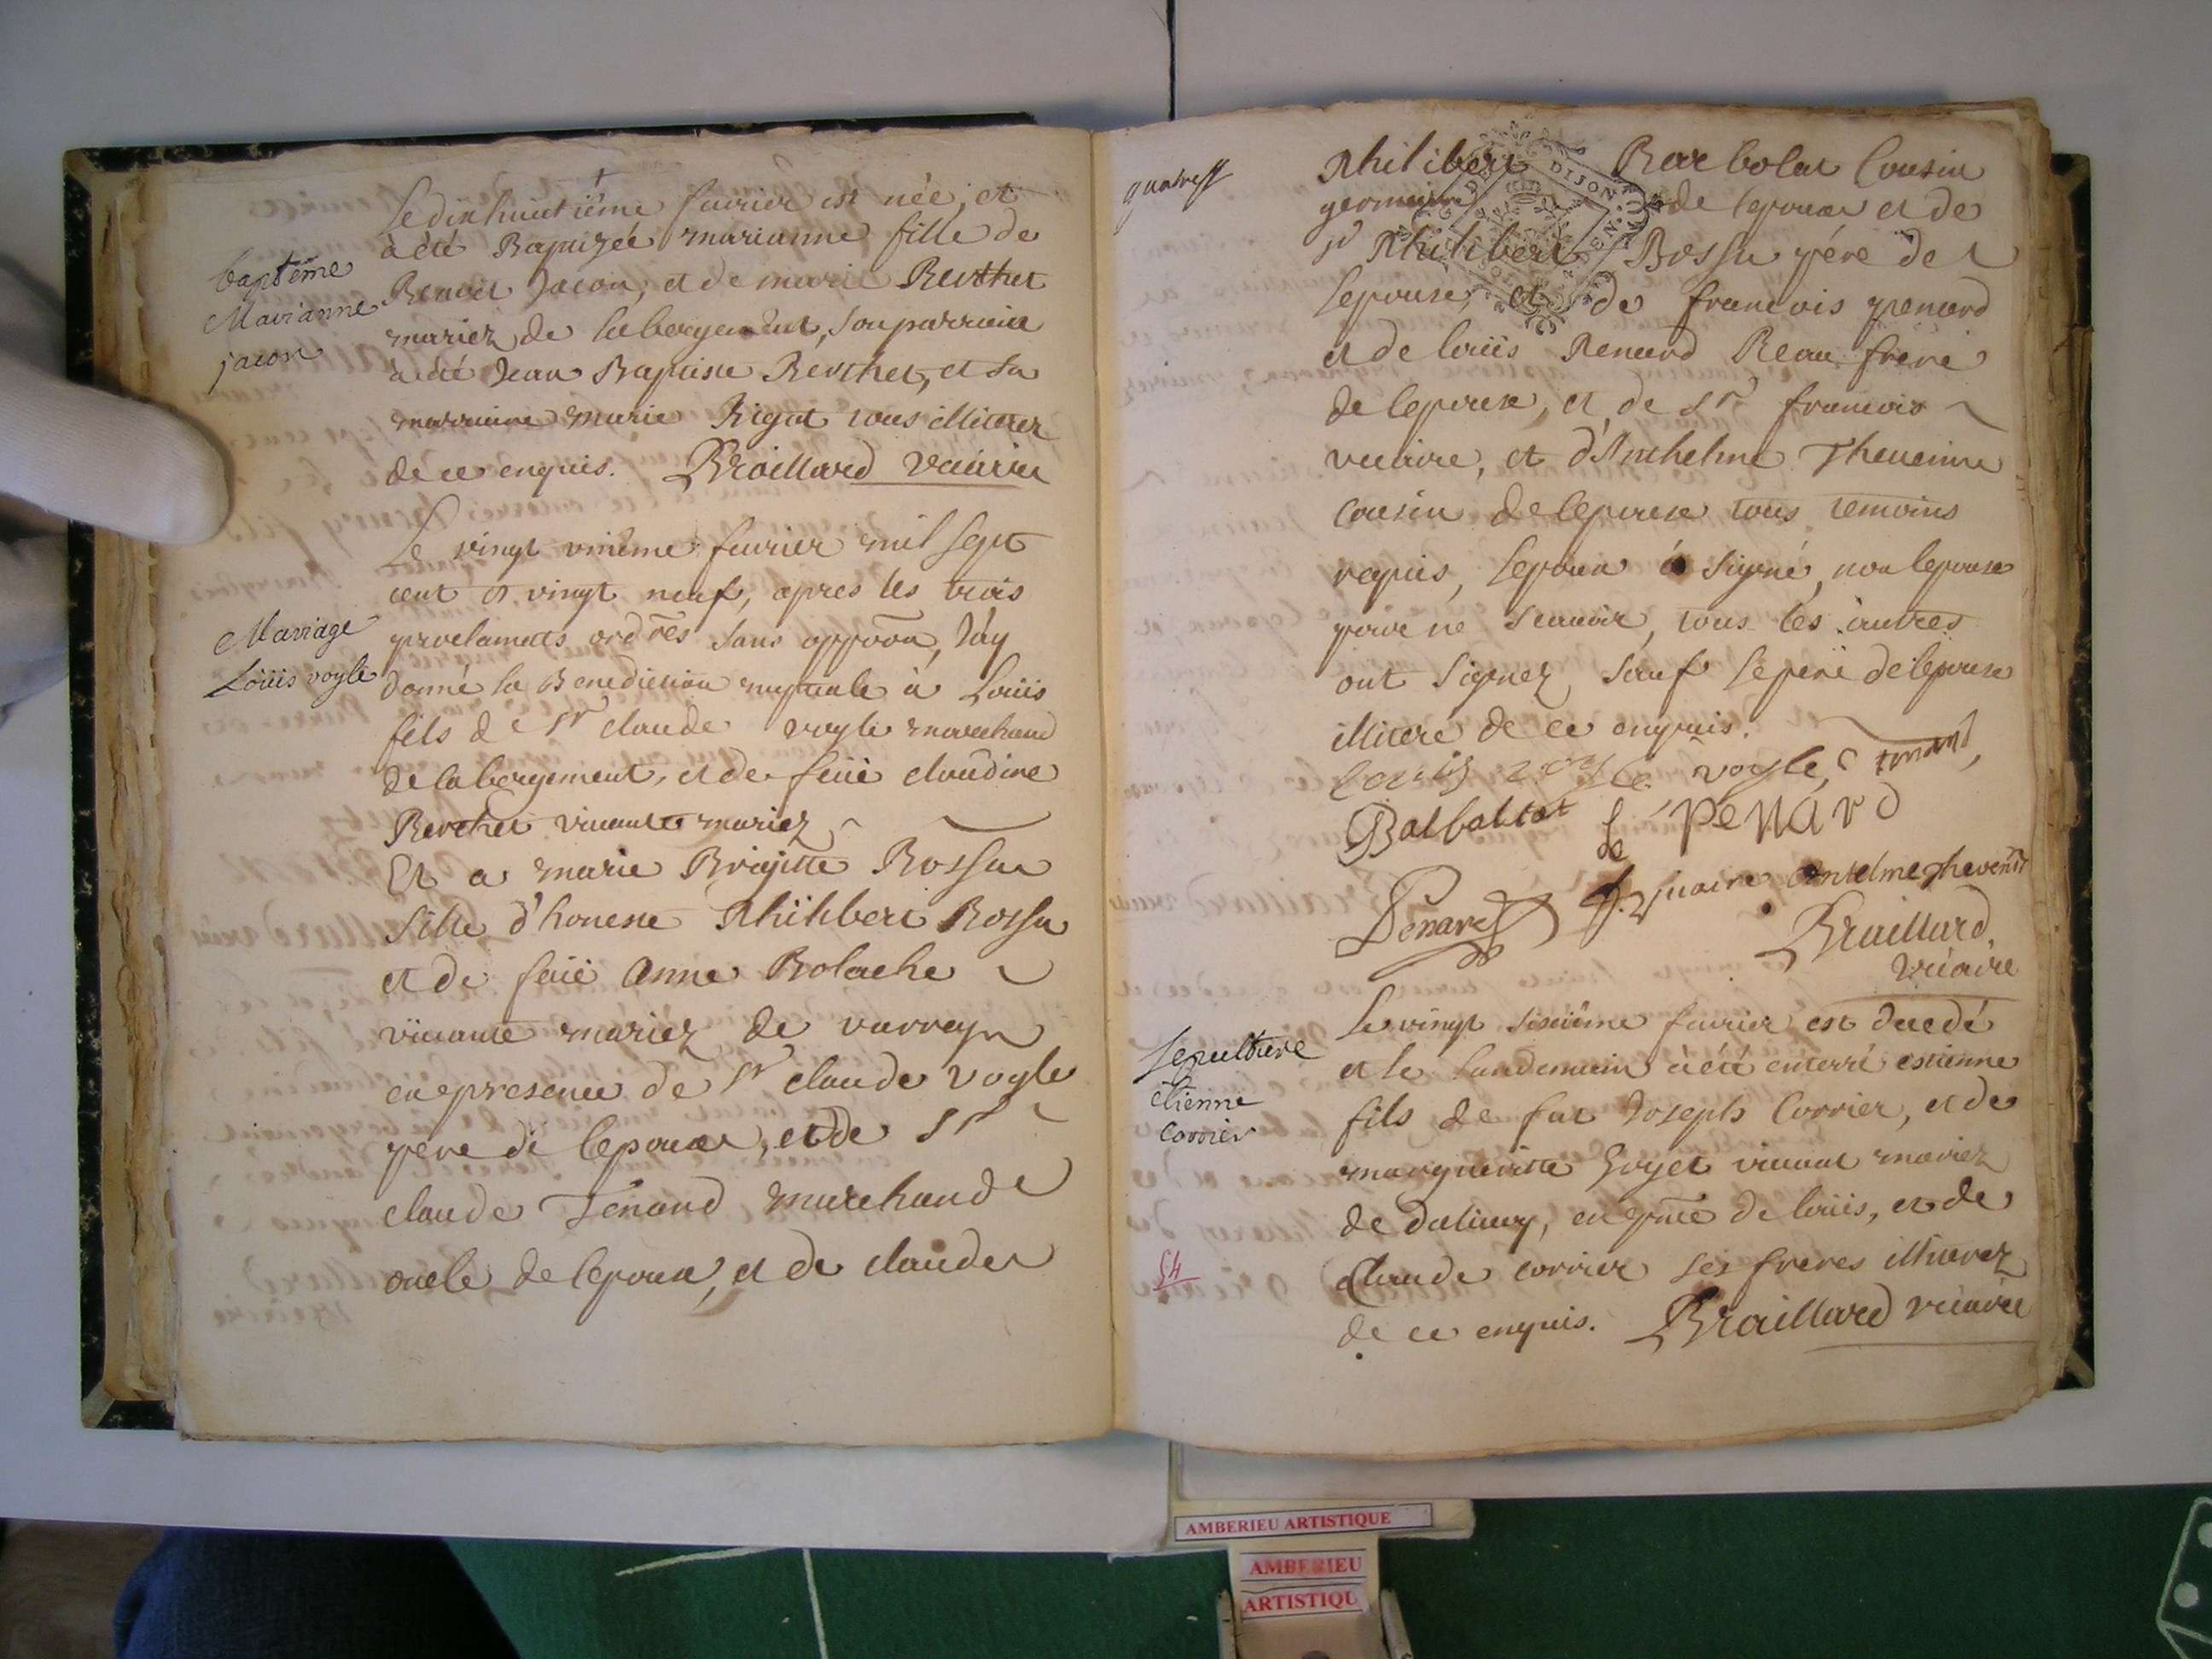 Le dix huictiéme feuvrier est née, et
à été Baptizée marianne fille de
baptême
Marianne
jacon
Benoit Jacon, et de marie Berthet
mariez de labergement, son parrain
à été Jean Baptiste Berthet, et sa
marraine marie Rigot tous illiterez
de ce enquis. Braillard vicaire
Le vingt uniéme feuvrier mil sept
cent et vingt neuf, apres les trois
Mariage
Loüis voyle
proclamats ordrēs sans oppōon, J'ay
donné la Benediction nuptiale à Loüis
fils de Sr claude voyle marchand
de labergement, et de feüe claudine
Berthet vivante mariez
Et a marie Brigitte Bossu
fille d'honeste Philibert Bossu
et de feüe Anne Bolache
vivante mariez de varrey
en presence de Sr claude voyle
pere de lepoux, et de Sr
claude Tenand marchand
oncle de lepoux, et de claude
Philibert Barbolat Cousin
germain de lepoux et de
Sr Philibert Bossu pére de
lepouse, et de francois penard
et de loüis Penard Beau frére
de lepouse, et de Sr francois
vucaire, et d'Anthelme Thevenin
cousin de lepouse tous temoins
requis, lepoux à signé, non lepouse
pour ne scauoir, tous les autres
ont signez sauf le pere de lepouse
illiteré de ce enquis.
Louis voyle voyle, C tenand,
Balbollat f penard
Penard f. vucaire Antelme Thevenin
Braillard,
vicaire
Le vingt sixiéme feuvrier est decedé
Sepulture
etienne
Corrier
et le landemain à été enterré estienne
fils de fut Joseph Corrier, et de
marguerite Goyet vivant mariez
de dalivoy, en pnce de loüis, et de
Claude corrier ses freres illiterez
54
de ce enquis. Braillard vicaire
AMBERIEU ARTISTIQUE
AMBERIEU
ARTISTIQU